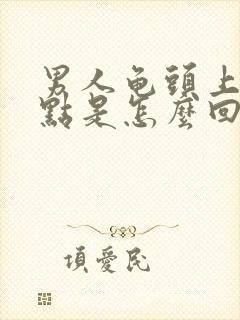 男人龟頭上
點是怎麼回
項愛民